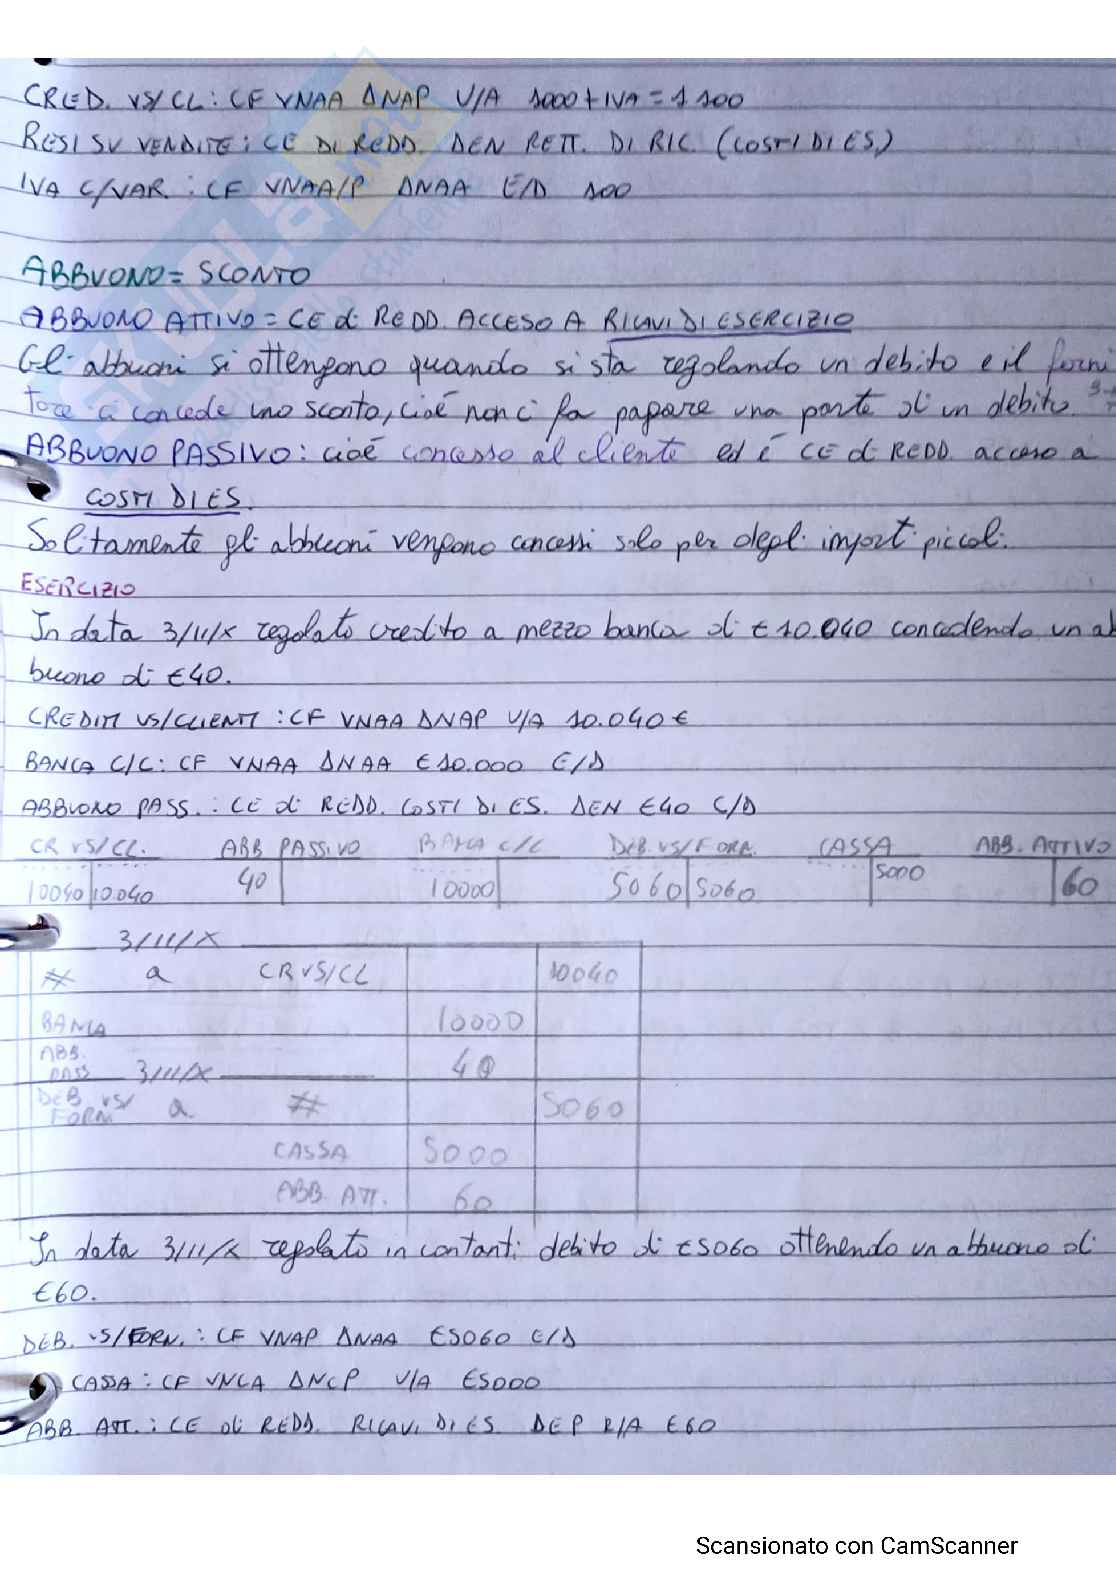 CRED. VS/CL: CF VNAA ΔNAP U/A 1000+IVA=1100
RESI SU VENDITE: CE DI REDD. DEN RETT. DI RIC. (COSTI DI ES)
IVA C/VAR: CF VNAA/P ΔNAA E/D 100
ABBUONO= SCONTO
ABBUONO ATTIVO= CE di REDD. ACCESO A RICAVI DI ESERCIZIO
Gli abbuoni si ottengono quando si sta regolando un debito e il forni
tore ci concede uno sconto, cioé non ci fa pagare una parte di un debito
ABBUONO PASSIVO: cioé concesso al cliente ed é CE di REDD. acceso a
COSTI DI ES.
Solitamente gli abbuoni vengono concessi solo per degli importi piccoli.
ESERCIZIO
In data 3/11/X regolato credito a mezzo banca di €10.040 concedendo un ab
buono di €40.
CREDITI VS/CLIENTI: CF VNAA ΔNAP U/A 10.040€
BANCA C/C: CF VNAA ΔNAA €10.000 E/D
ABBUONO PASS.: CE di REDD. COSTI DI ES. DEN €40 C/D
CR VS/CL. ABB PASSIVO BANCA C/C DEB. VS/FORN. CASSA ABB. ATTIVO
10040 10.040 40 10000 5060 5060 5000 60
3/11/X
# a CR VS/CL 10040
BANCA 10000
ABB. PASS 40
3/11/X
DEB VS/ FORN a # 5060
CASSA 5000
ABB. ATT. 60
In data 3/11/X regolato in contanti debito di €5060 ottenendo un abbuono di
€60.
DEB. VS/FORN.: CF VNAP ΔNAA €5060 E/D
CASSA: CF VNCA ΔNCP U/A €5000
ABB. ATT.: CE di REDD. RICAVI DI ES. DEP R/A €60
Scansionato con CamScanner